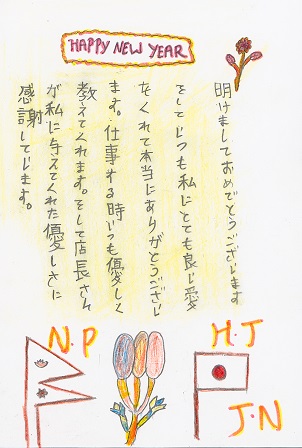 HAPPY NEW YEAR
明けましておめでとうございます
をしていつも私にとても良い愛
をくれて本当にありがとうござい
ます。仕事する時いつも優しく
教えてくれます。そして店長さん
が私に与えてくれた優しさに
感謝しています。
N.P
H.J
J.N